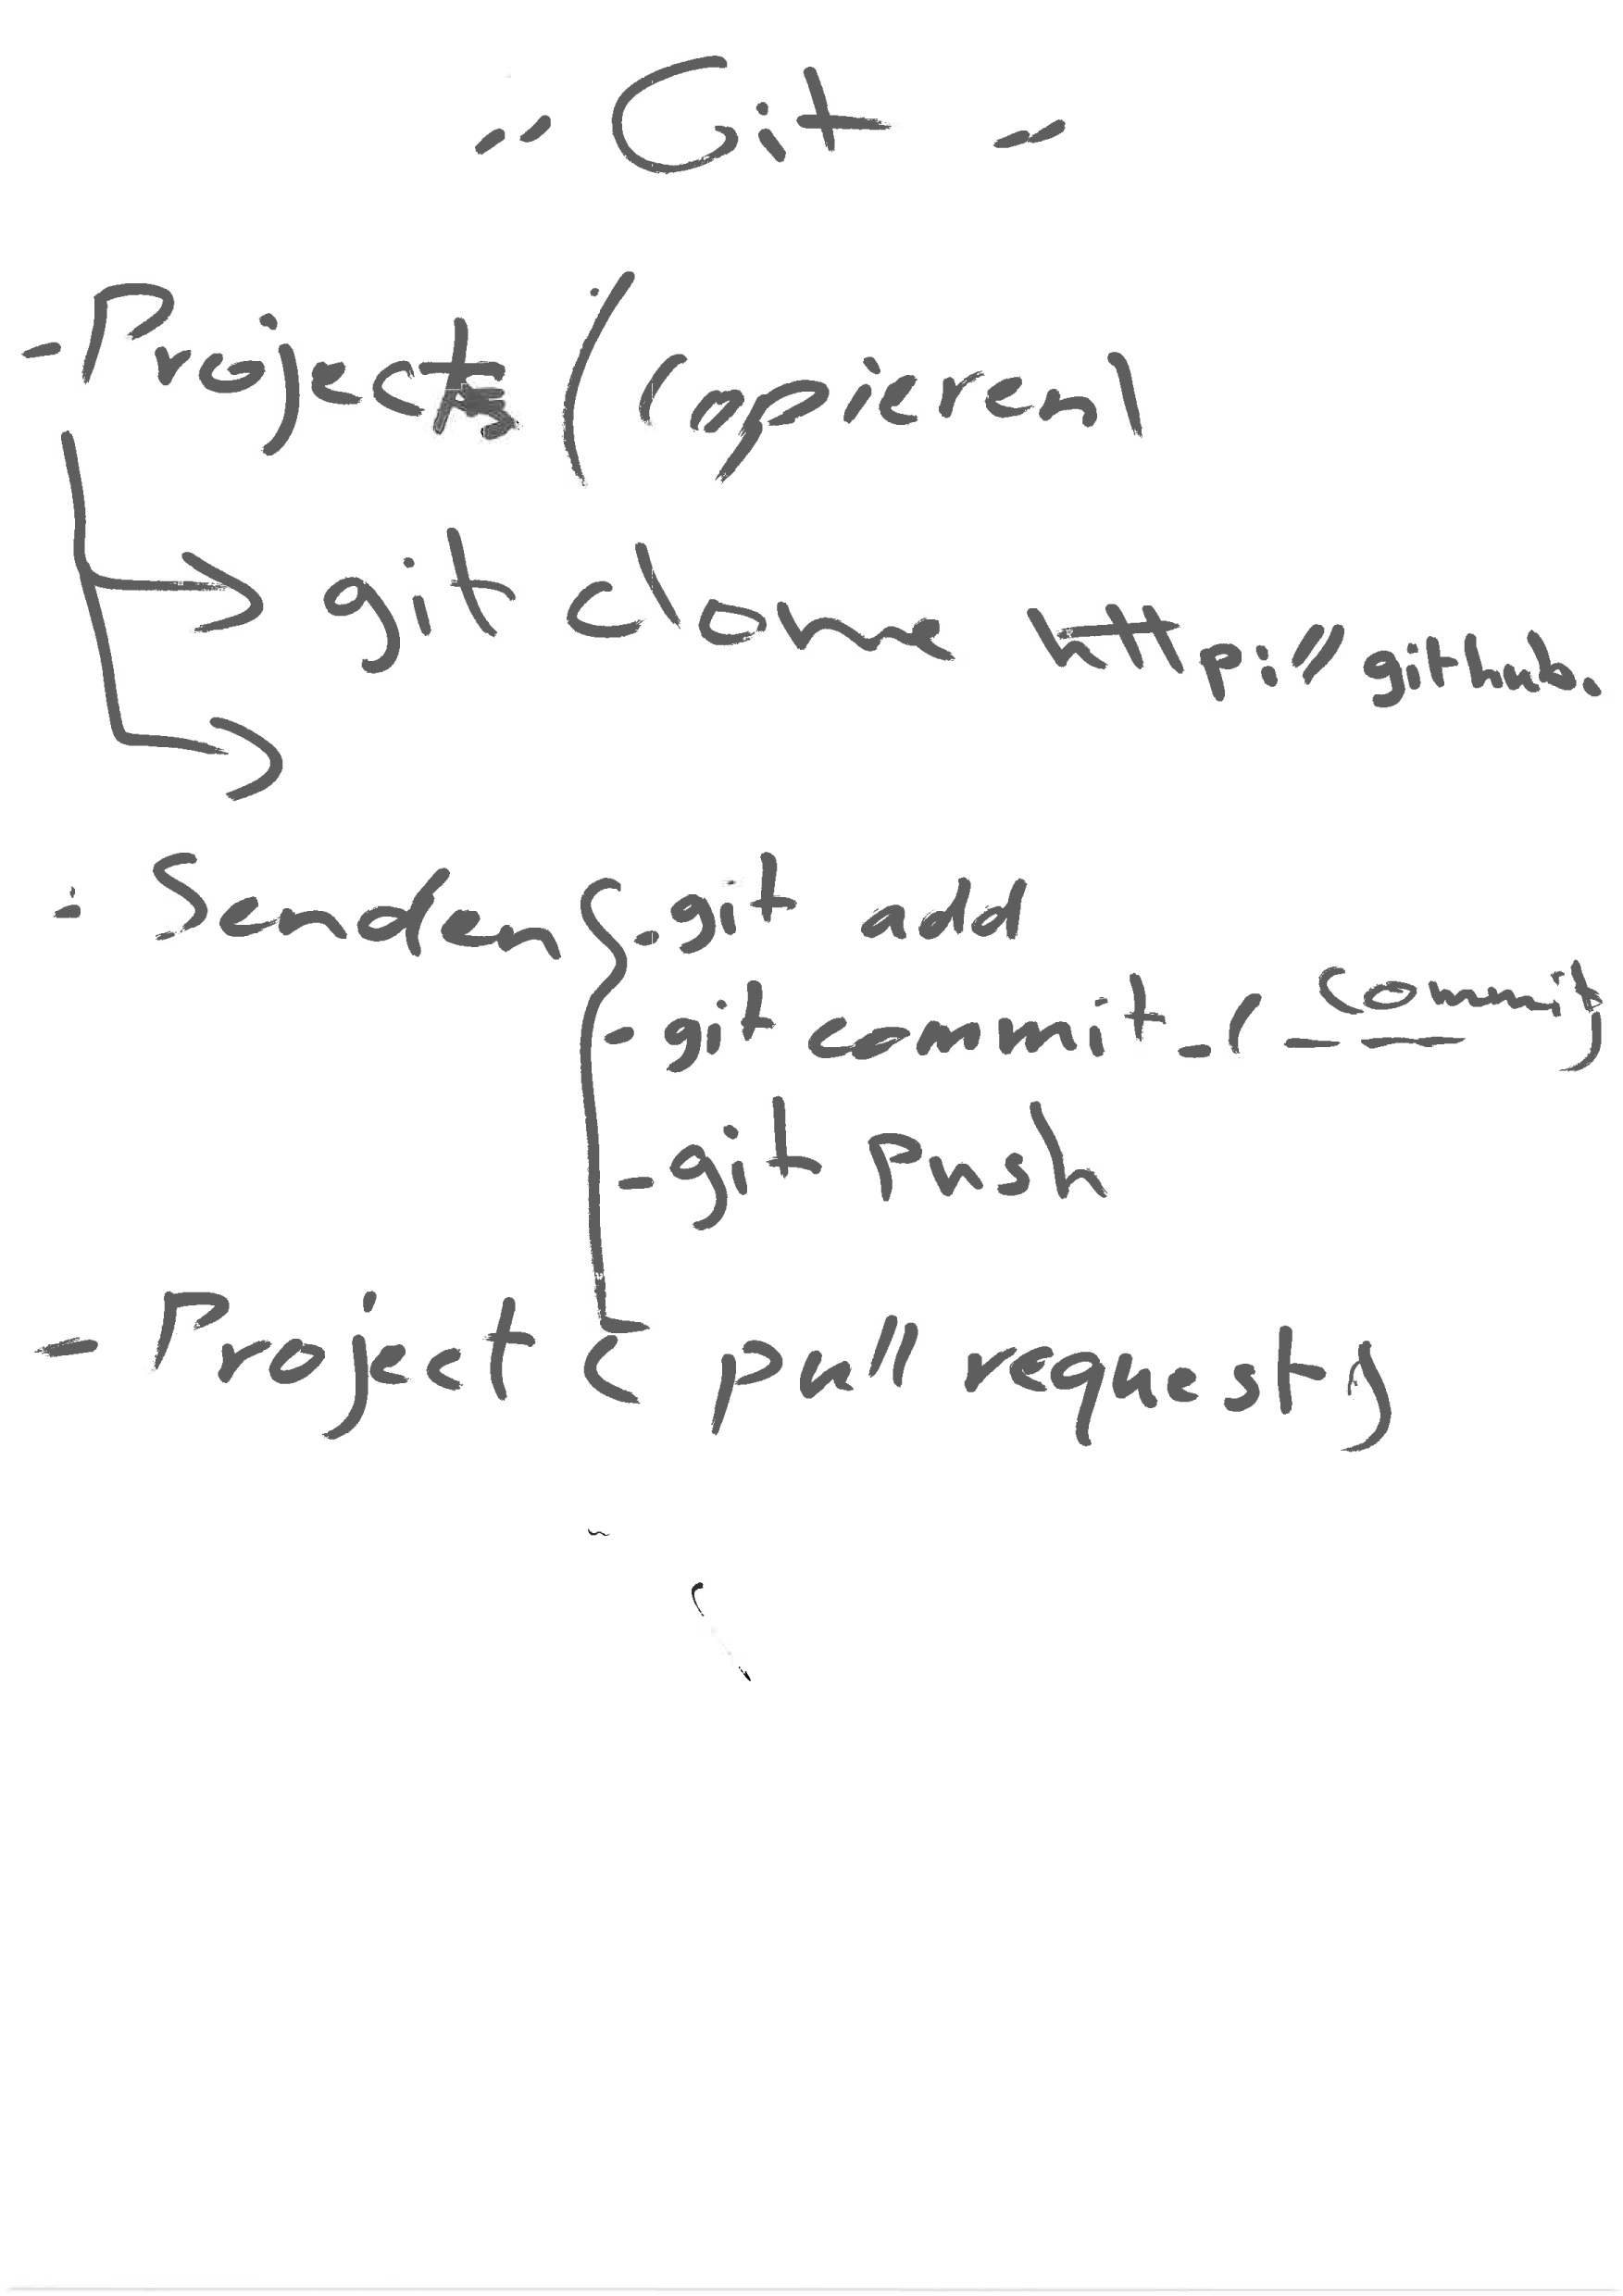 -- Git -
- Projects (copieren)
git clone http://github.
- Senden { - git add
- git commit - (- commit)
- git push
- Project ( pull request )